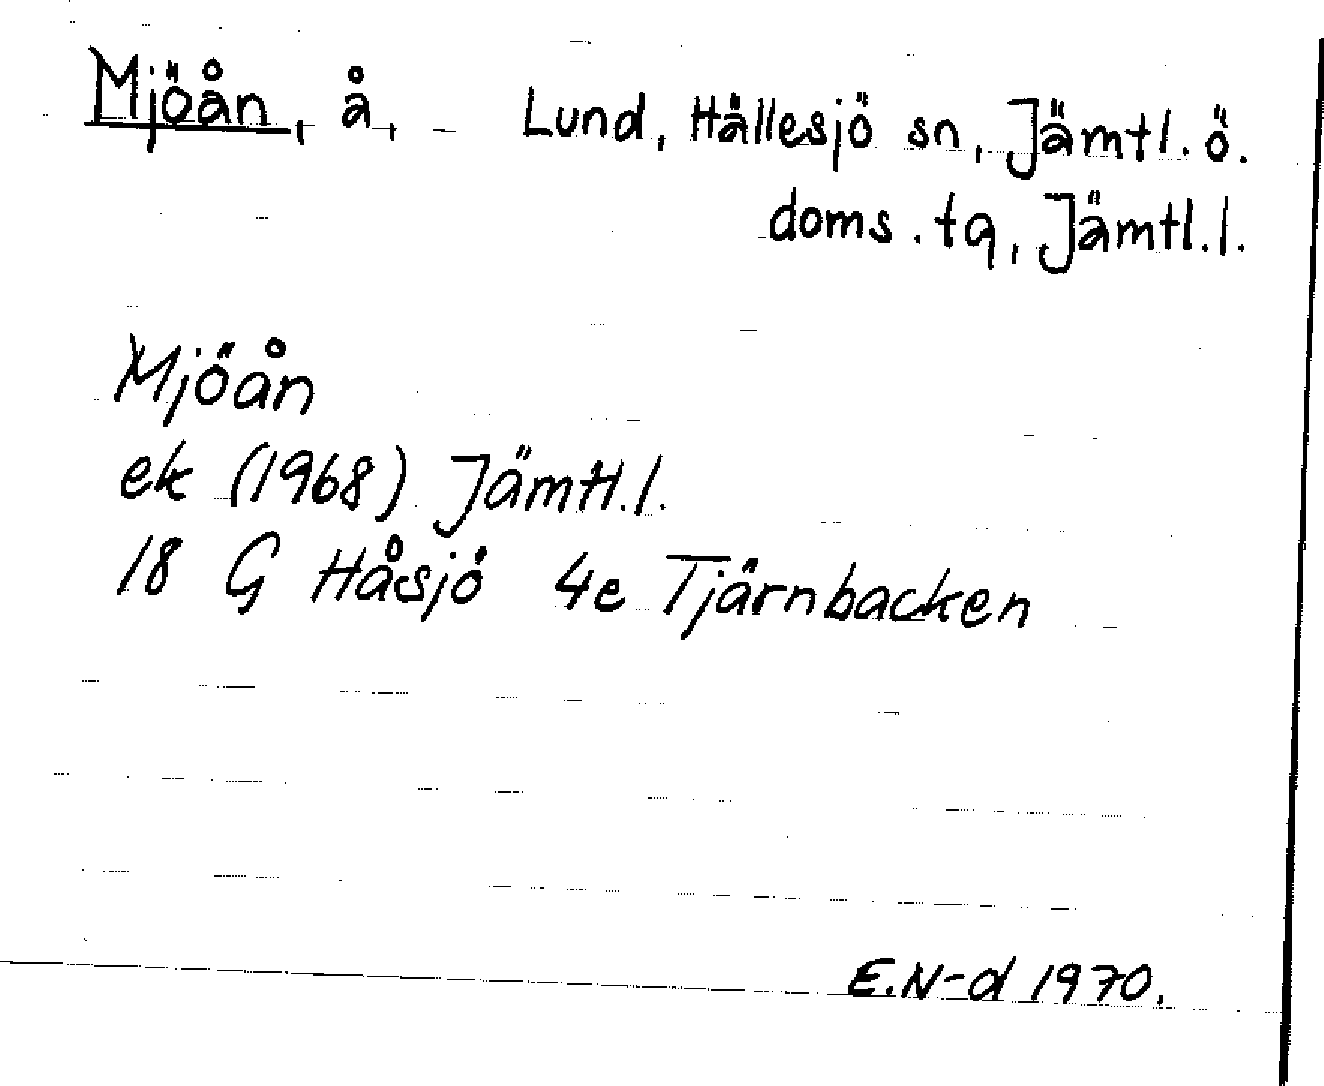 Mjöån, å, - Lund, Hällesjö sn, Jämtl. ö.
doms. tg, Jämtl. l.
Mjöån
ek (1968) Jämtl. l.
18 G Håsjö 4e Tjärnbacken
E.N-d 1970.